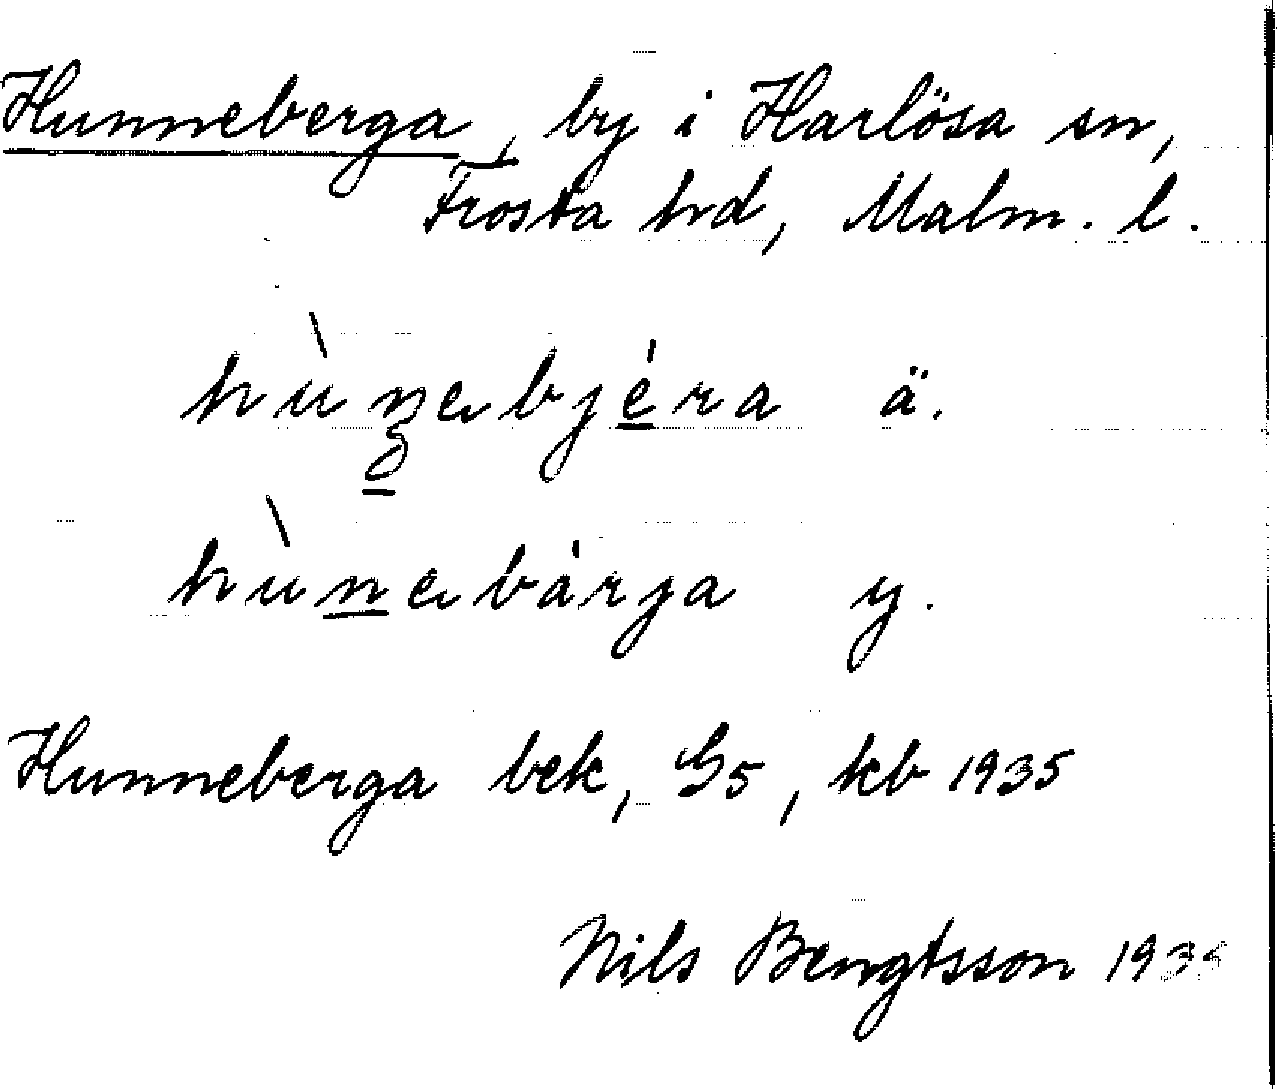 Hunneberga, by i Harlösa sn,
Frosta hrd, Malm. l.
hùnebjéra ä.
hùnebárja y.
Hunneberga bek, G5, kb 1935
Nils Bengtsson 1935